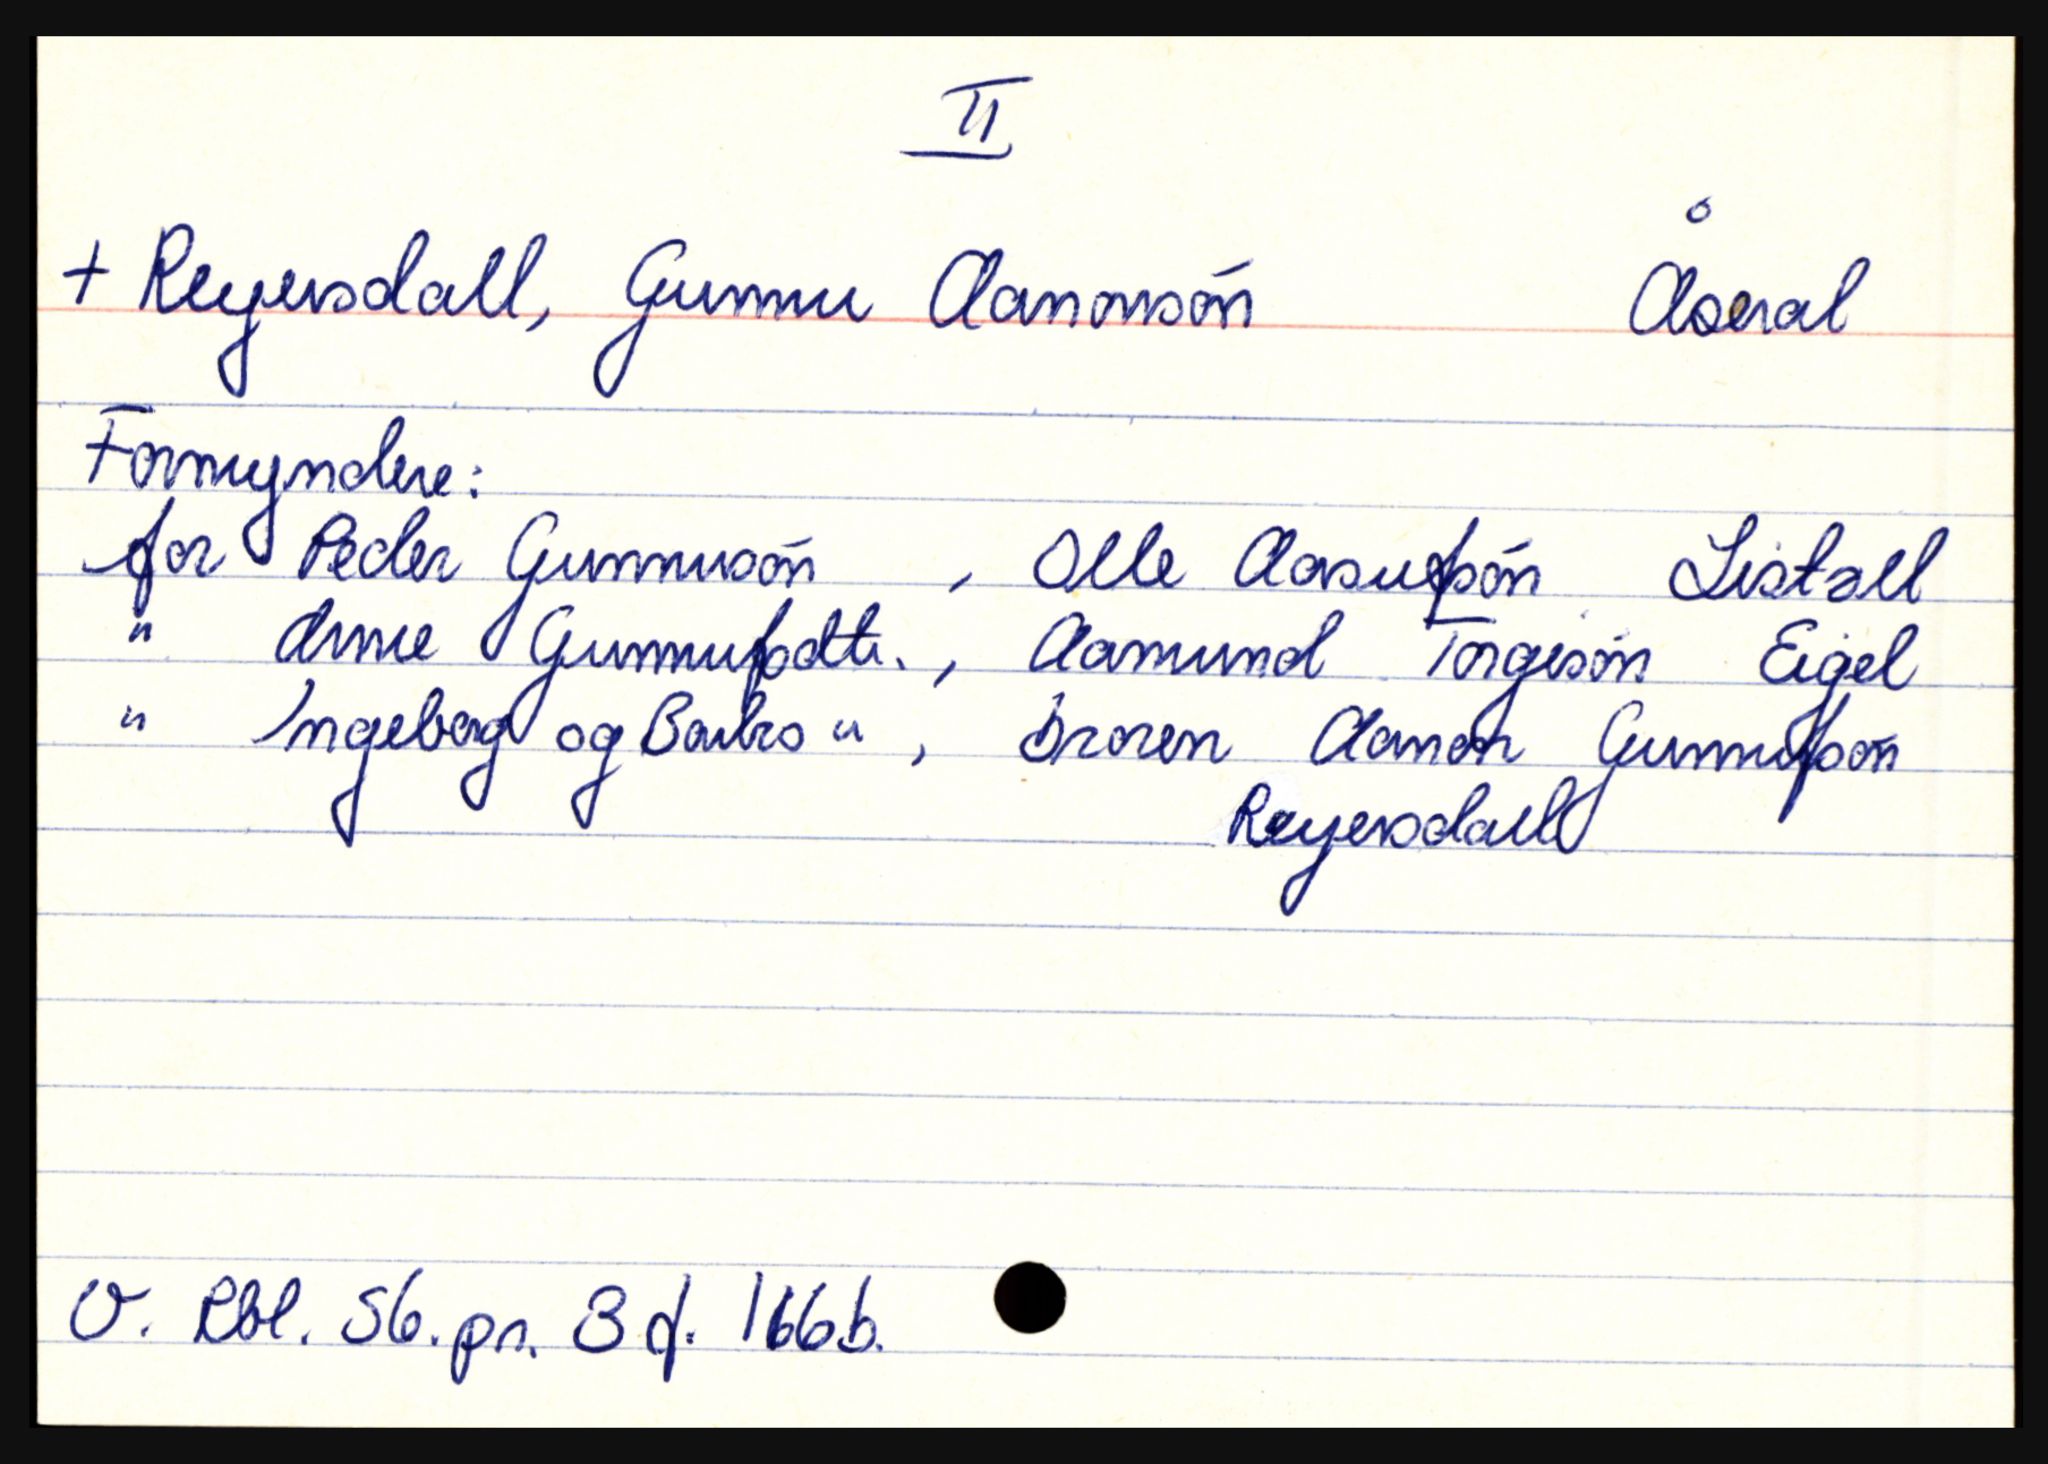 II
+ Reyersdall, Gunnu Aanonsøn Åseral
Formyndere:
for Peder Gunnusøn , Olle Aasufsøn Listøll
" Anne Gunnufsdtr. , Aamund Torgisøn Eigel
" Ingeborg og Barbro " , broren Aanon Gunnufsøn
Reyersdall
V. Rbl. 56. pr. 3 f. 166b.